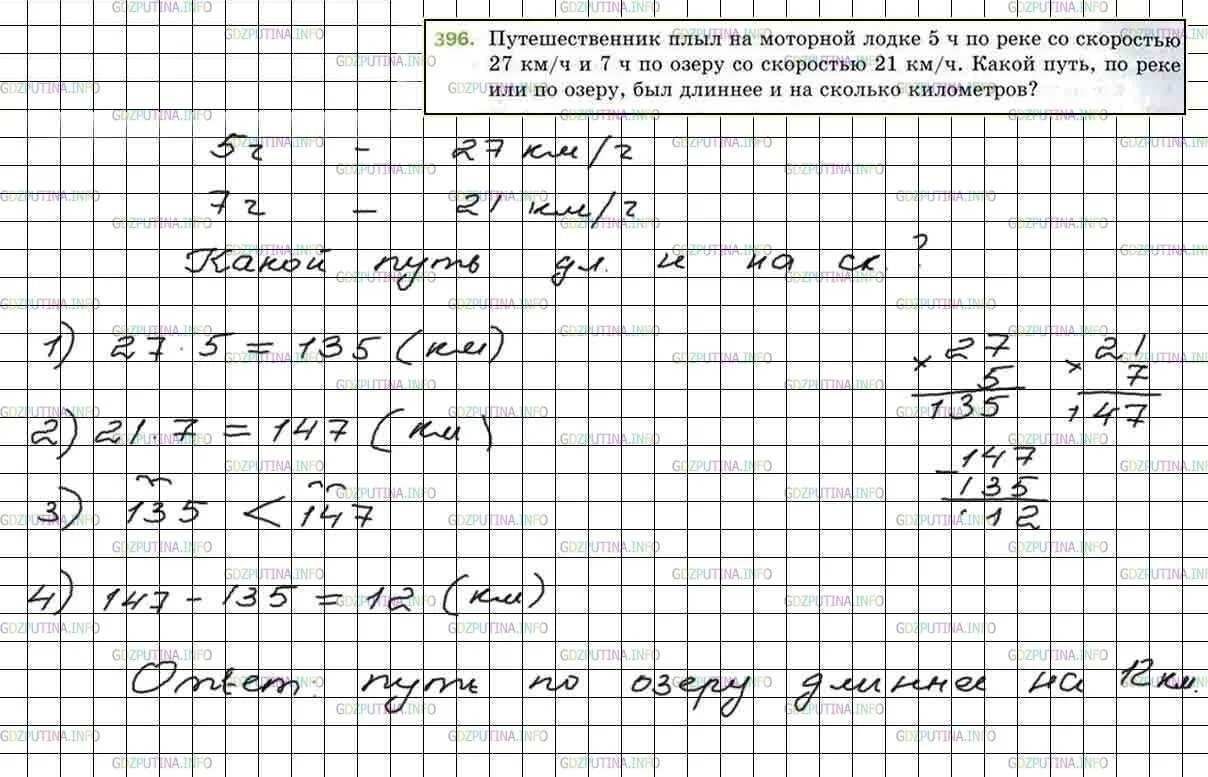 396. Путешественник плыл на моторной лодке 5 ч по реке со скоростью
27 км/ч и 7 ч по озеру со скоростью 21 км/ч. Какой путь, по реке
или по озеру, был длиннее и на сколько километров?
5ч - 27 км/ч
7ч - 21 км/ч
Какой путь дл. и на ск.?
1) 27 · 5 = 135 (км)
2) 21 · 7 = 147 (км)
3) 135 < 147
4) 147 - 135 = 12 (км)
Ответ: путь по озеру длиннее на 12 км.
× 27
5
135
× 21
7
147
- 147
135
12
GDZPUTINA.INFO